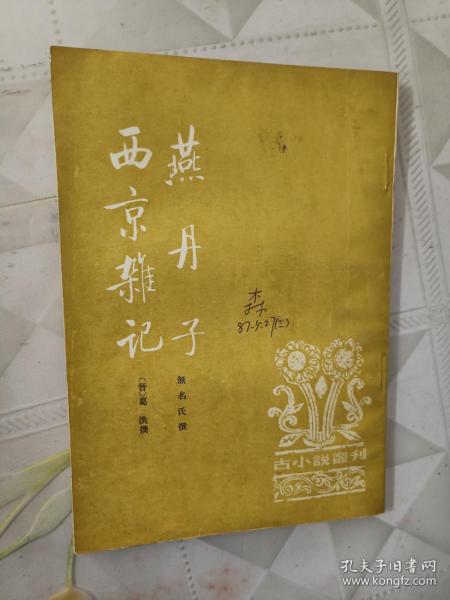 燕丹子
無名氏撰
西京雜记
〔晉〕葛洪撰
森
87-5-27(三)
古小説叢刊
孔夫子旧书网
www.kongfz.com